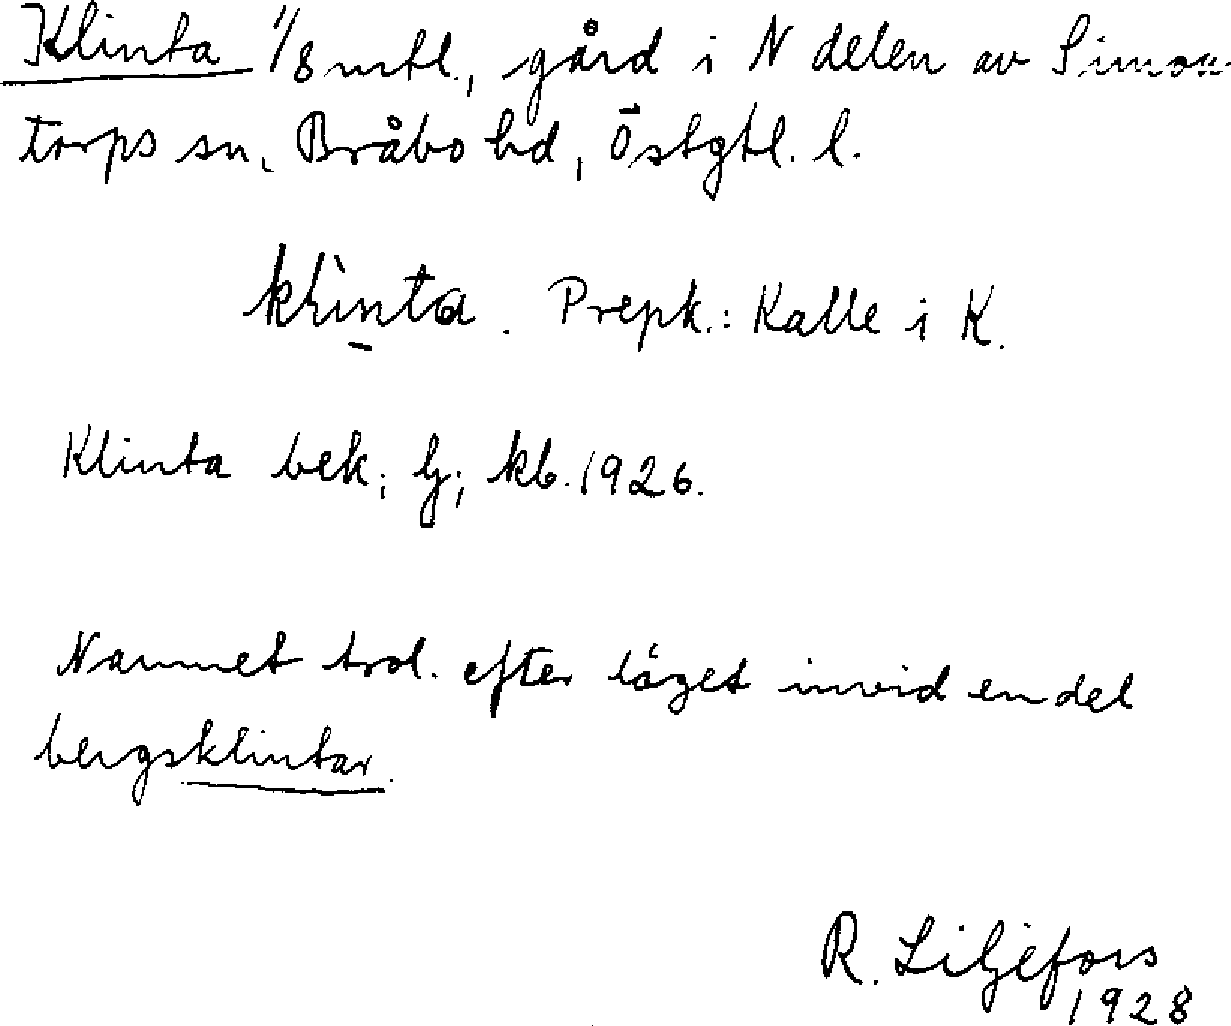 Klinta 1/8 mtl., gård i N delen av Simon-
torps sn, Bråbo hd, Östgtl. l.
klìnta. Prepk.: Kalle i K.
Klinta bek; lj; kb. 1926.
Namnet trol. efter läget invid en del
bergsklintar.
R. Liljefors
1928